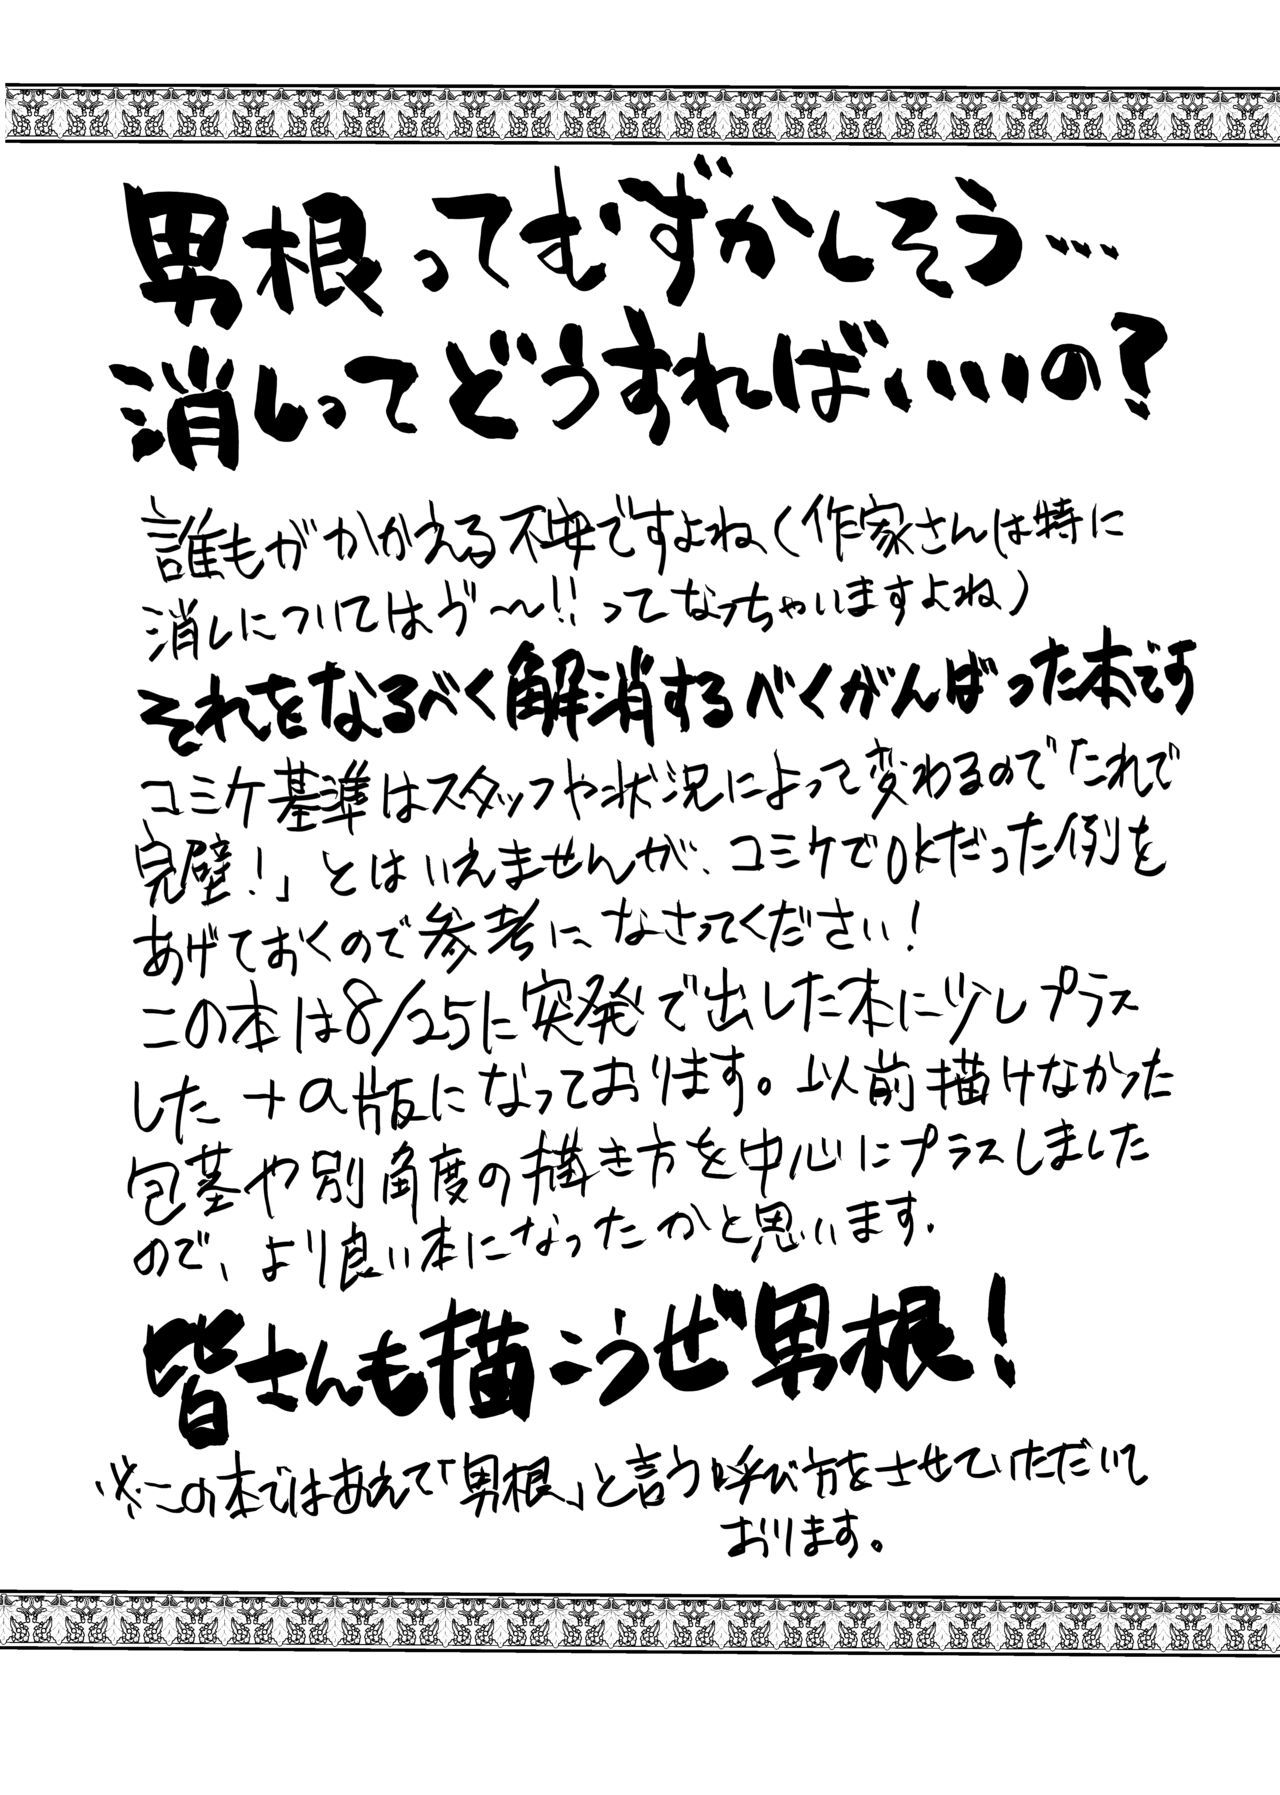 男根ってむずかしそう…
消しってどうすればいいの?
誰もがかかえる不安ですよね(作家さんは特に
消しについてはヴ〜!!ってなっちゃいますよね)
それをなるべく解消するべくがんばった本です
コミケ基準はスタッフや状況によって変わるので「これで
完璧!」とはいえませんが、コミケでOKだった例を
あげておくので参考になさってください!
この本は8/25に突発で出した本に少しプラス
した+α版になっております。以前描けなかった
包茎や別角度の描き方を中心にプラスしました
ので、より良い本になったかと思います.
皆さんも描こうぜ男根!
※この本ではあえて「男根」と言う呼び方をさせていただいて
おります。